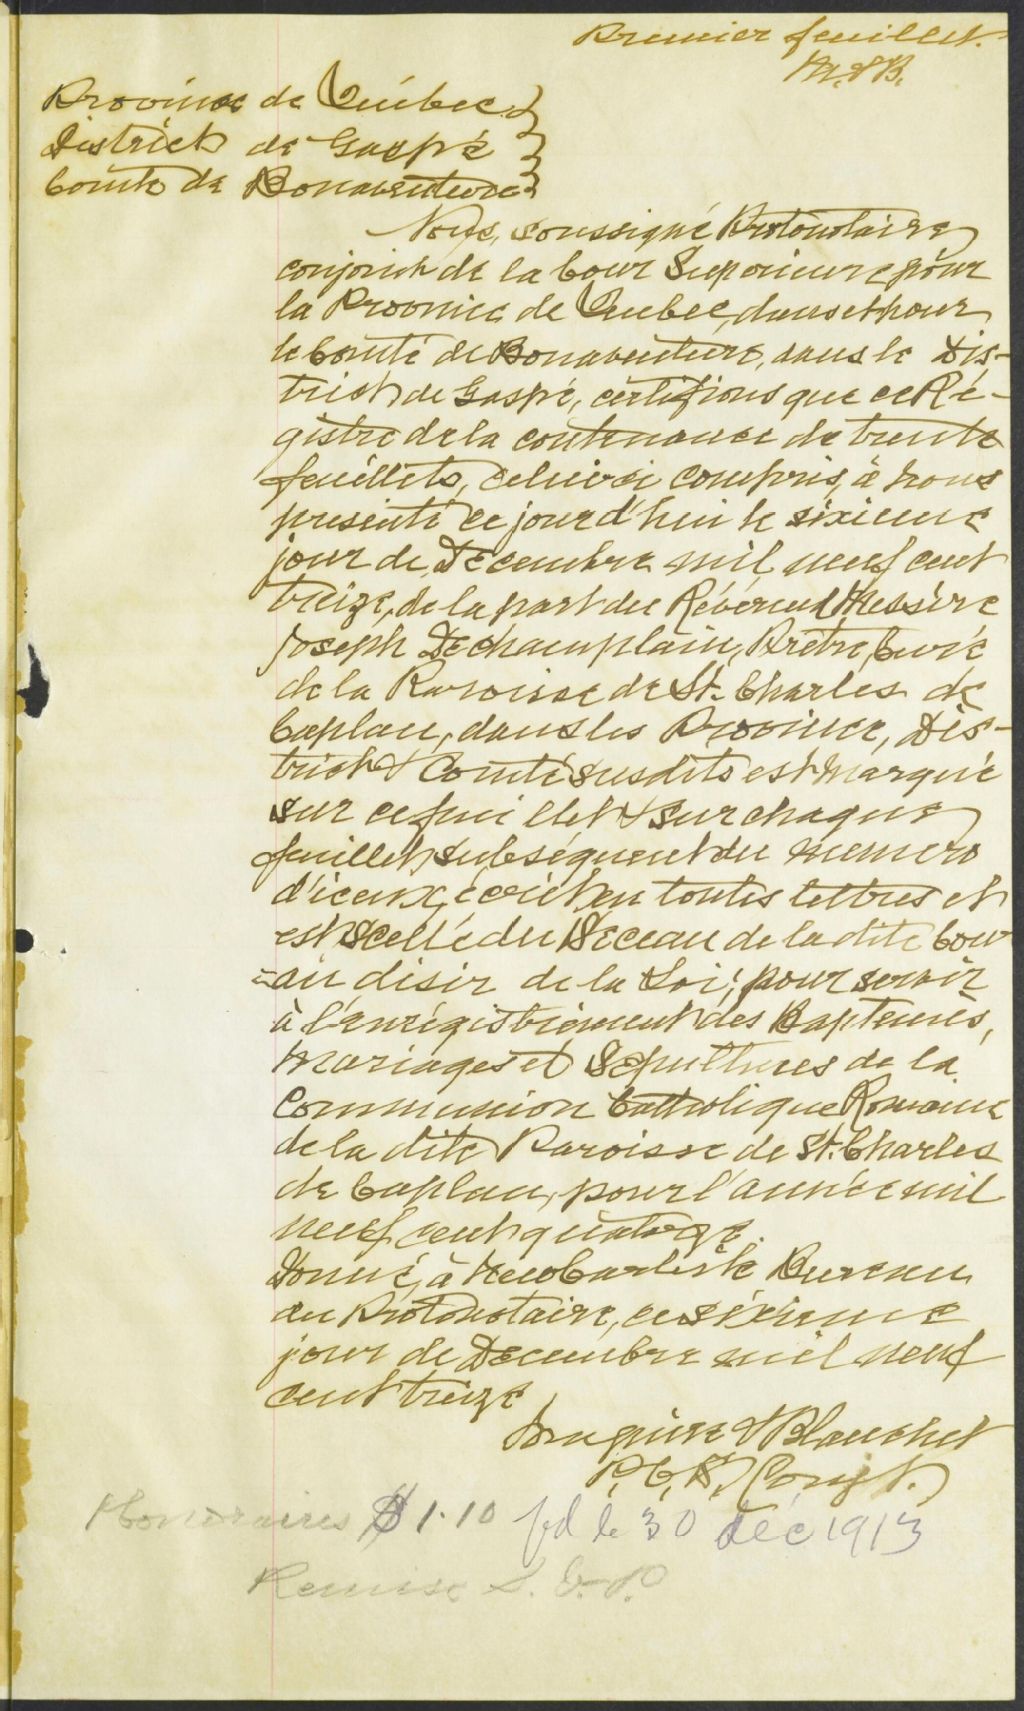 Premier feuillet.
M. & B.
Province de Québec
District de Gaspé
Comté de Bonaventure
Nous, soussigné Protonotaire
conjoint de la Cour Superieure pour
la Province de Quebec, dans et pour
le Comté de Bonaventure, dans le Dis-
trict de Gaspé, certifions que ce Ré-
gistre de la contenance de trente
feuillets, celui-ci compris, à nous
presenté ce jourd'hui le sixieme
jour de Décembre mil neuf cent
treize, de la part du Révérend Messire
Joseph Dechamplain, Prêtre, Curé
de la Paroisse de St. Charles de
Caplan, dans les Province, Dis-
trict & Comté susdits est marqué
sur ce feuillet & sur chaque
feuillet subséquent du numero
d'iceux, écrit en toutes lettres et
est Scellé du Sceau de la dite Cour
au désir de la Loi; pour servir
à l'enrégistrement des Baptemes,
Mariages et Sépultures de la
Communion Catholique Romaine
de la dite Paroisse de St. Charles
de Caplan, pour l'année mil
neuf cent quatorze.
Donné, à New Carlisle Bureau
du Protonotaire, ce sixieme
jour de Décembre mil neuf
cent treize
& Blanchet
P. C. S. Conjt.
Honoraires $1.10 pd le 30 déc 1913
Remise